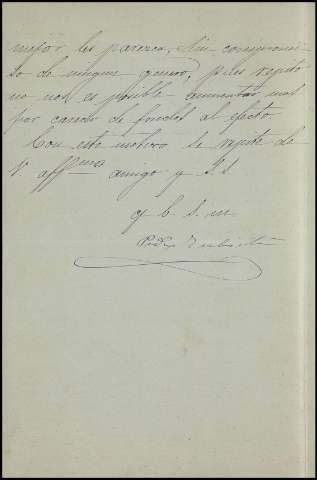 mejor les parezca, sin compromi-
so de ningun genero, pues repito
no nos es posible aumentar mas
por carecer de fondos al efecto.
Con este motivo se repite de
V. affmo amigo y S. S.
q b s. m.
Pedro